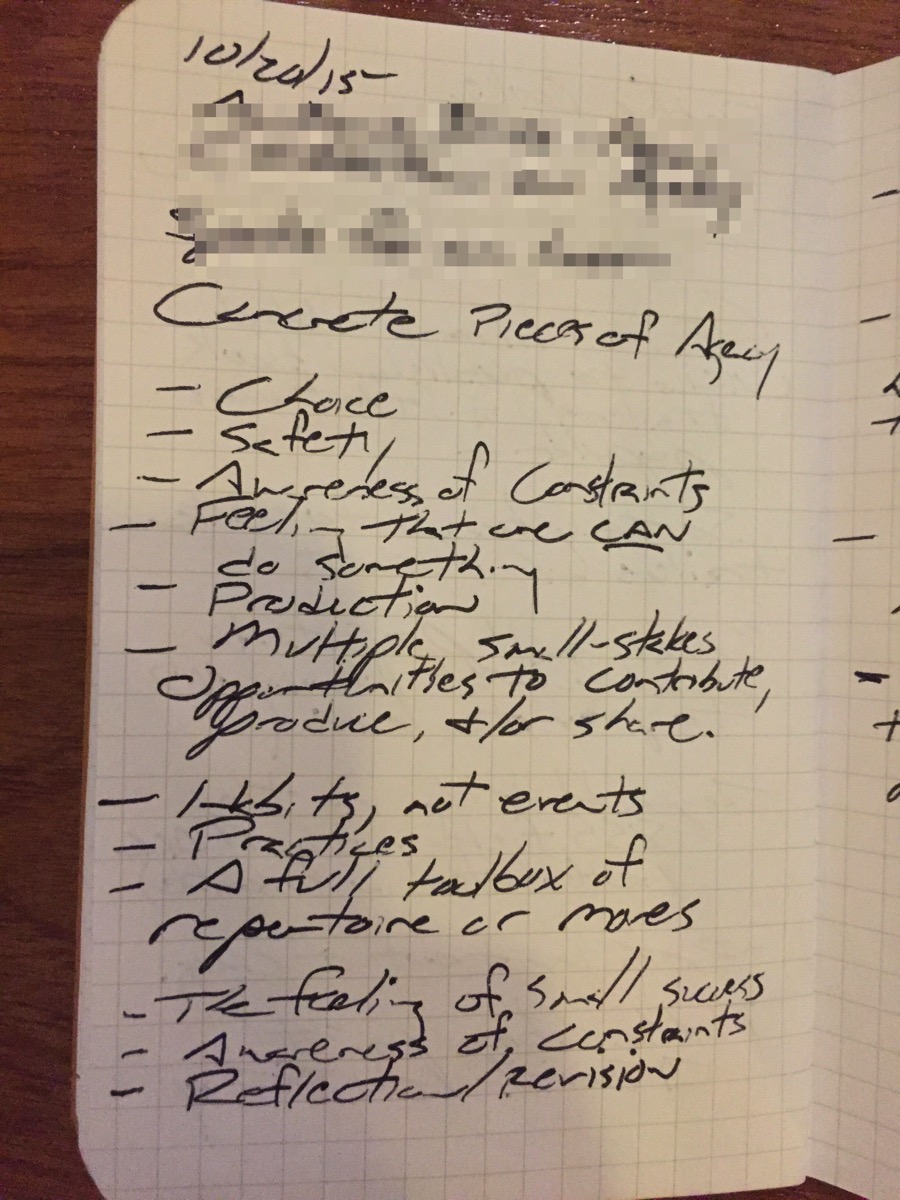 10/20/15
Concrete Pieces of Agency
- Choice
- Safety
- Awareness of Constraints
- Feeling that we CAN
do something
- Production
- Multiple small-stakes
opportunities to contribute,
produce, &/or share.
- Habits, not events
- Practices
- A full toolbox of
repertoire or moves
- The feeling of small success
- Awareness of constraints
- Reflection/revision